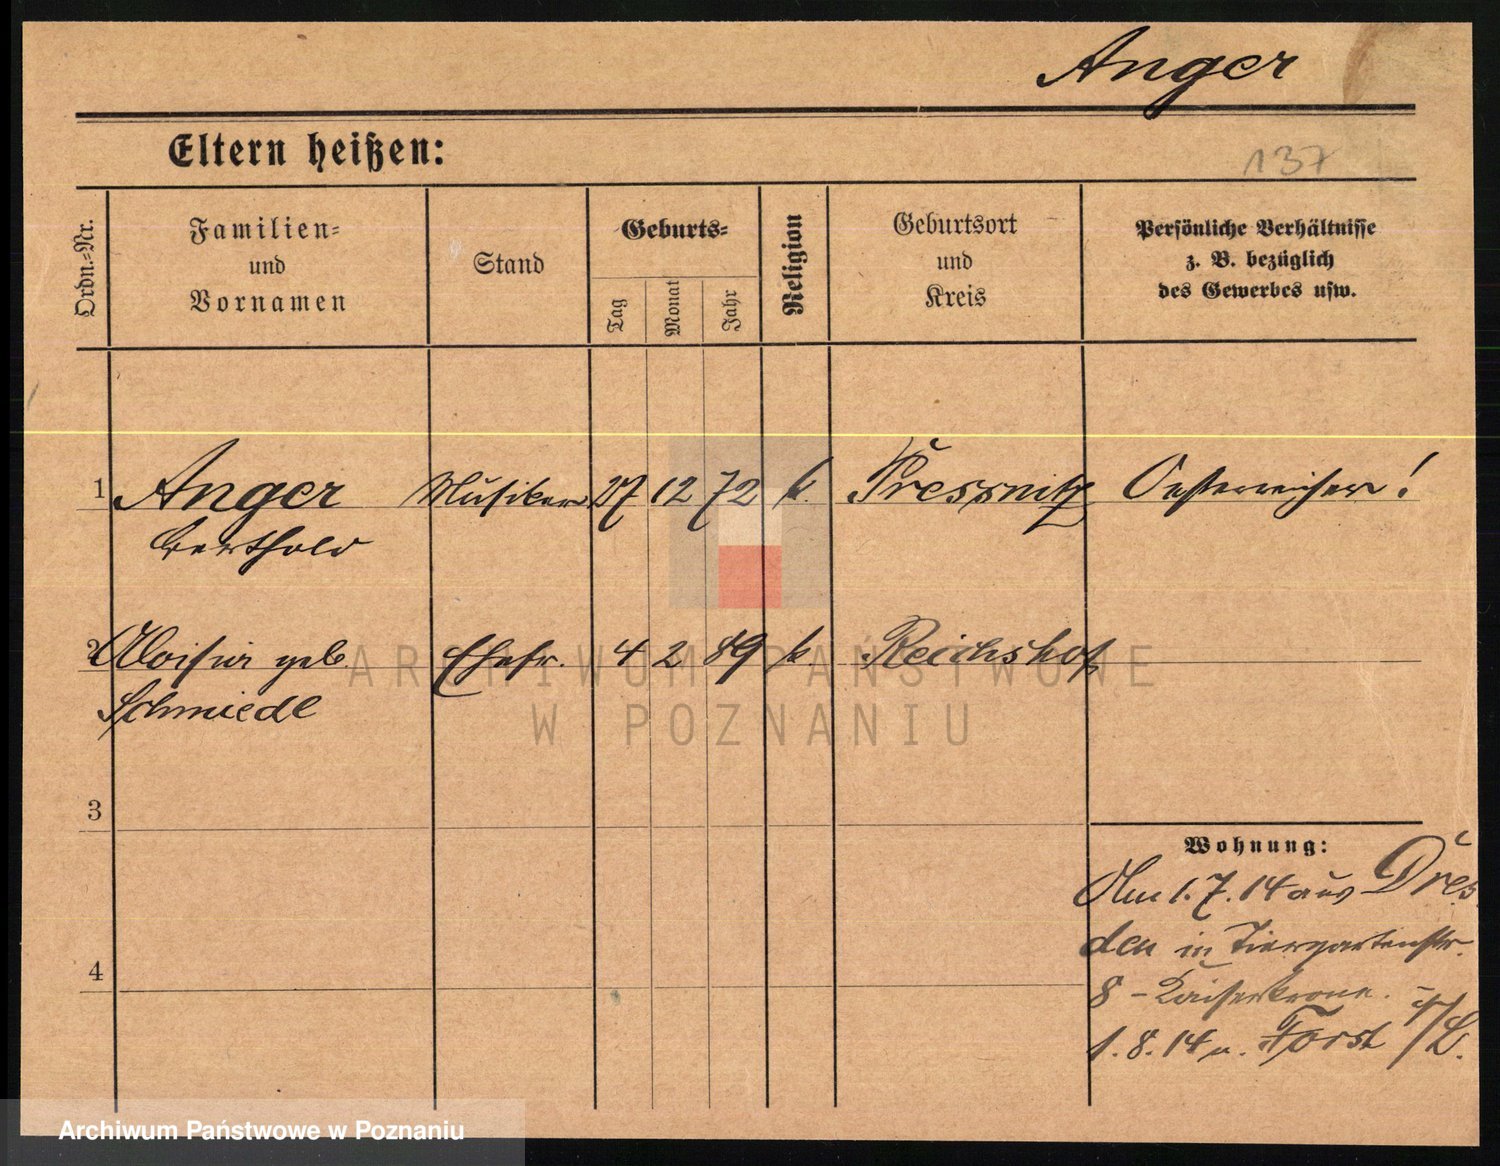 Anger
Eltern heißen:
137
Ordn.-Nr.
Familien- und Vornamen
Stand
Geburts-
Tag
Monat
Jahr
Religion
Geburtsort und Kreis
Persönliche Verhältnisse z. B. bezüglich des Gewerbes usw.
1 Anger Musiker 27 12 72 k. Pressnitz Oesterreicher!
Berthold
2 Aloisia geb. Ehefr. 4 2 89 k. Reichshof
Schmiedl
3
4
Wohnung:
Am 1.7.14 aus Dres
den in Tiergartenstr.
8 - Kaiserkrone. -
1.8.14 n. Forst i/L.
ARCHIWUM PAŃSTWOWE
W POZNANIU
Archiwum Państwowe w Poznaniu